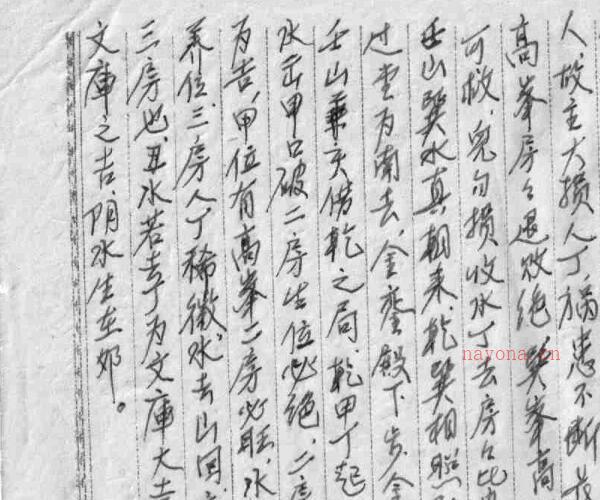 人,故主大损人丁,祸患不断,
高峯房々退败绝,巽峯高
可救,兔勾损收水丁去房々比
壬山巽水真朝来,乾巽相照
过堂为南去,金銮殿下步金
壬山兼亥借乾之局,乾甲丁起
水出甲口破二房生位必绝,二房
为吉,甲位有高峯二房必旺,水
养位,三房人丁稀微,水去山回
三房也,丑水若去丁为文庫大吉
文庫之吉,阴水生在邜。
nayona.cn